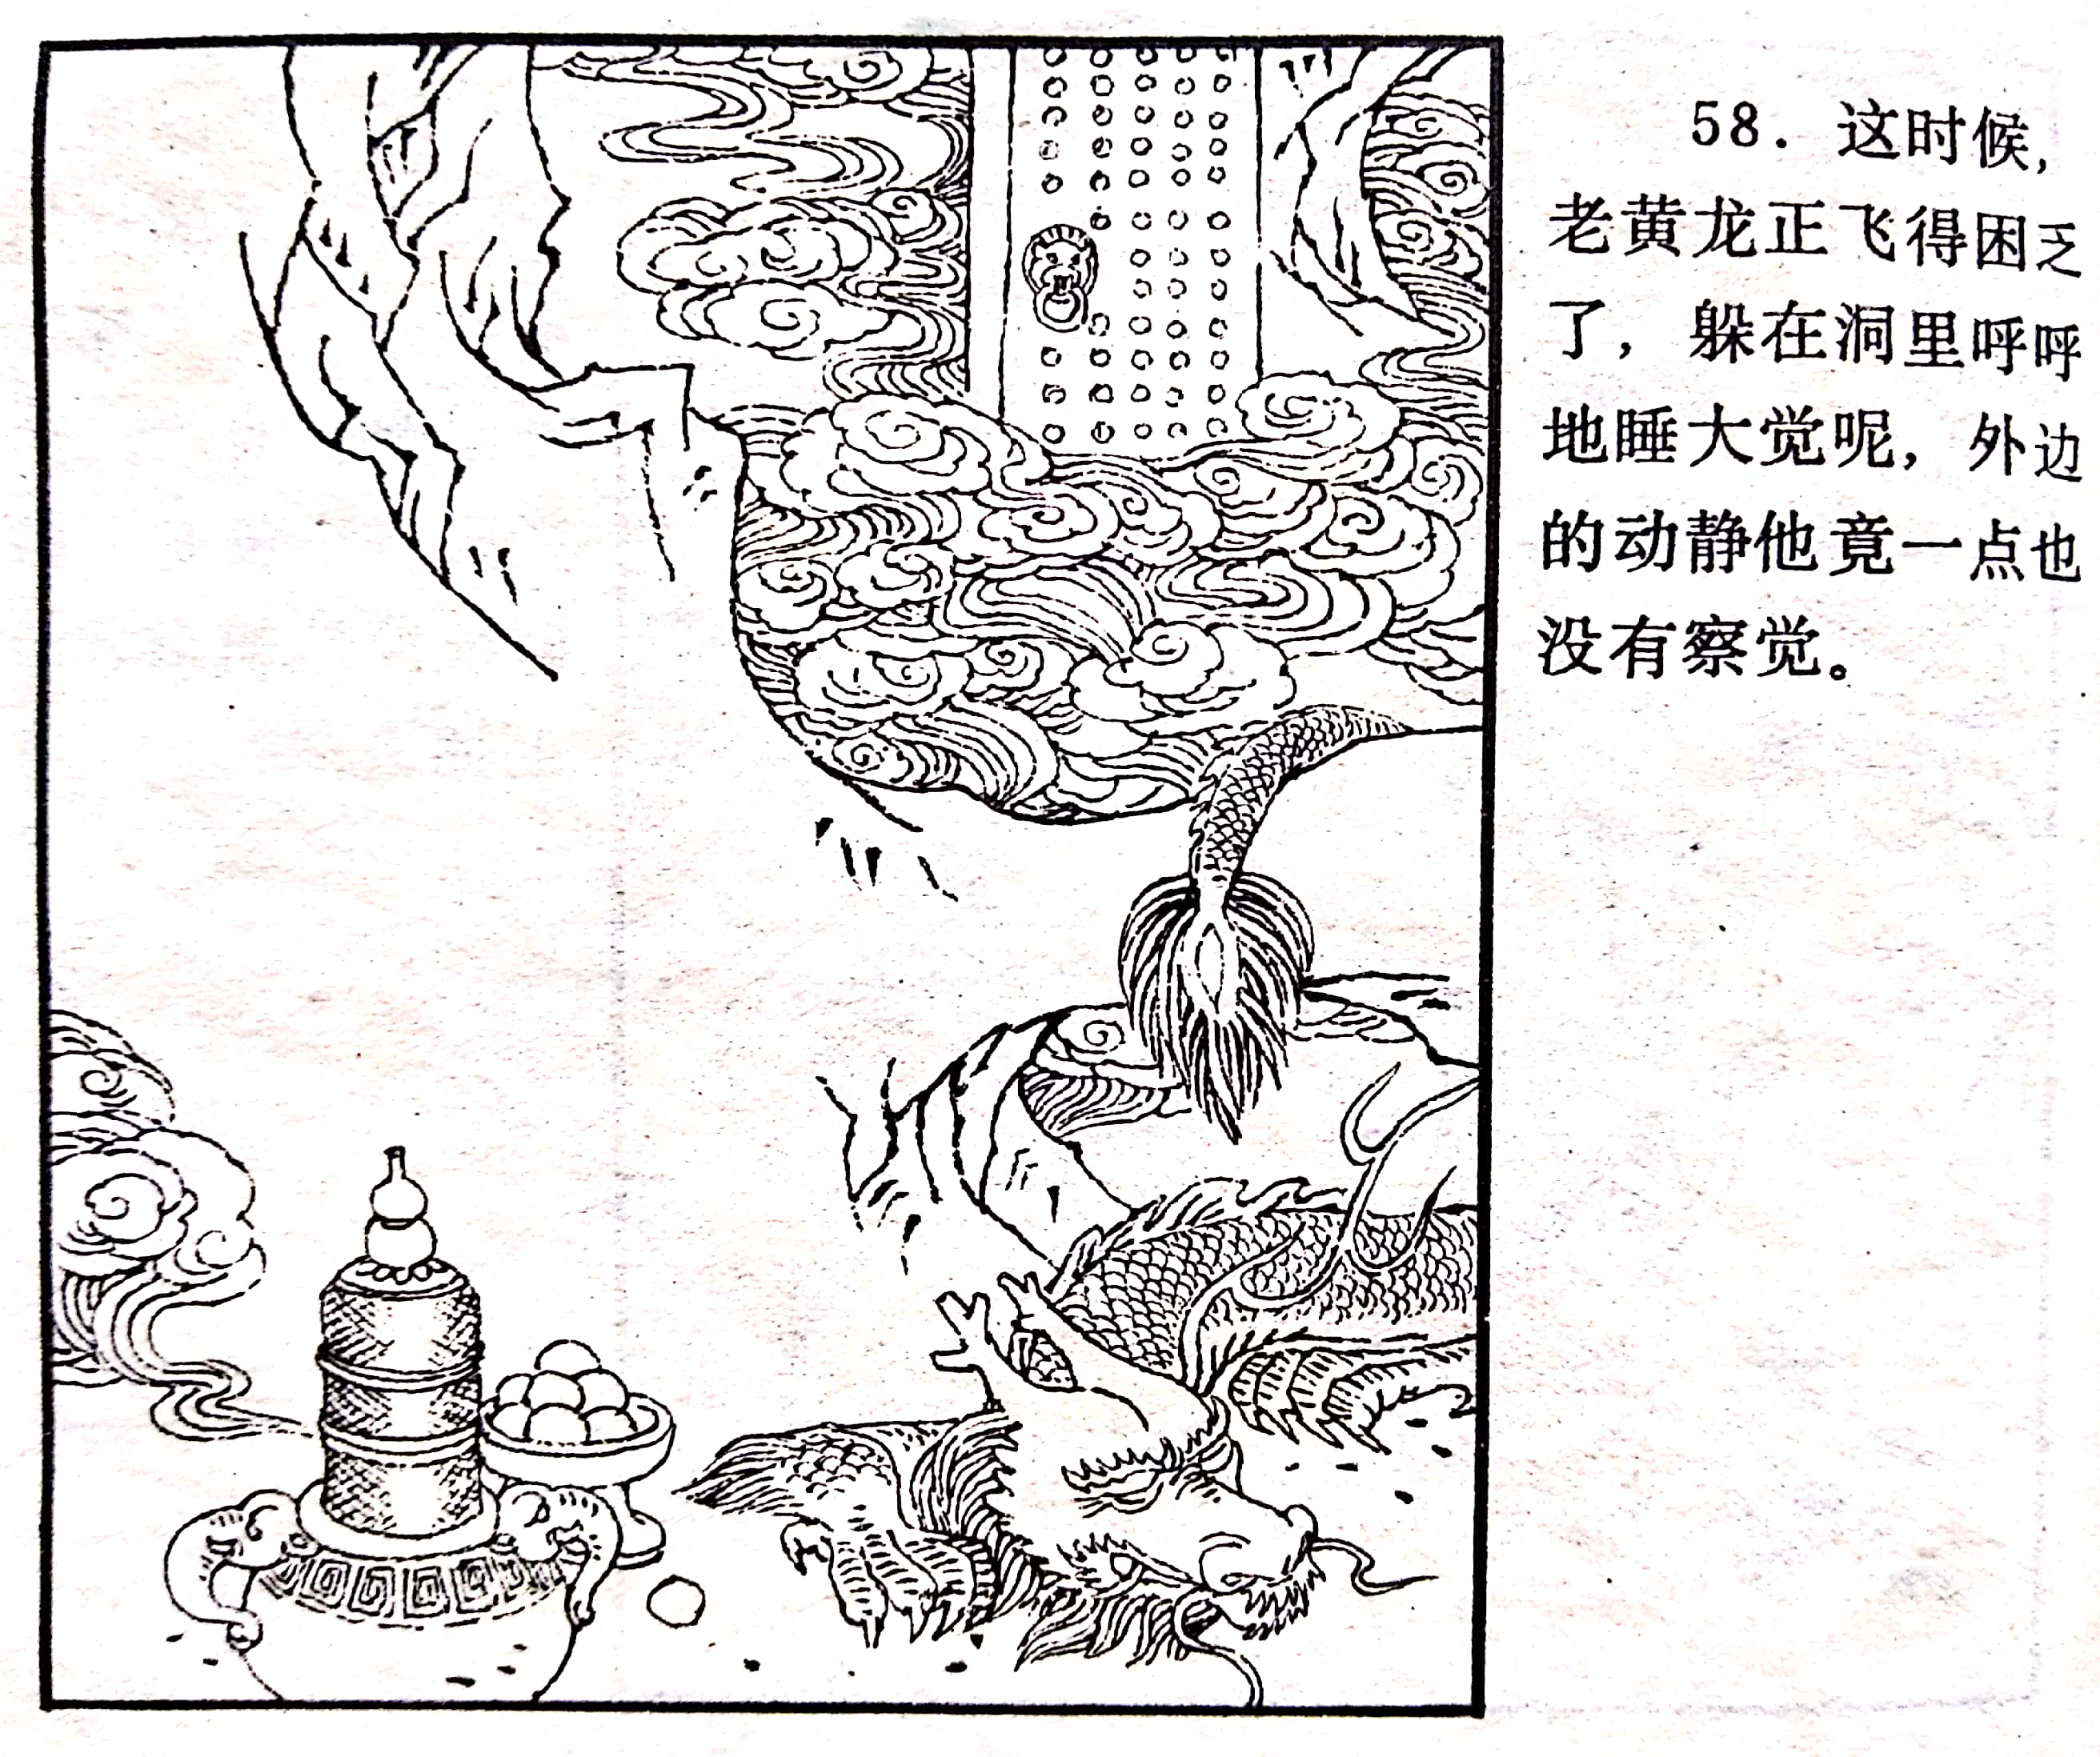 58. 这时候，
老黄龙正飞得困乏
了，躲在洞里呼呼
地睡大觉呢，外边
的动静他竟一点也
没有察觉。